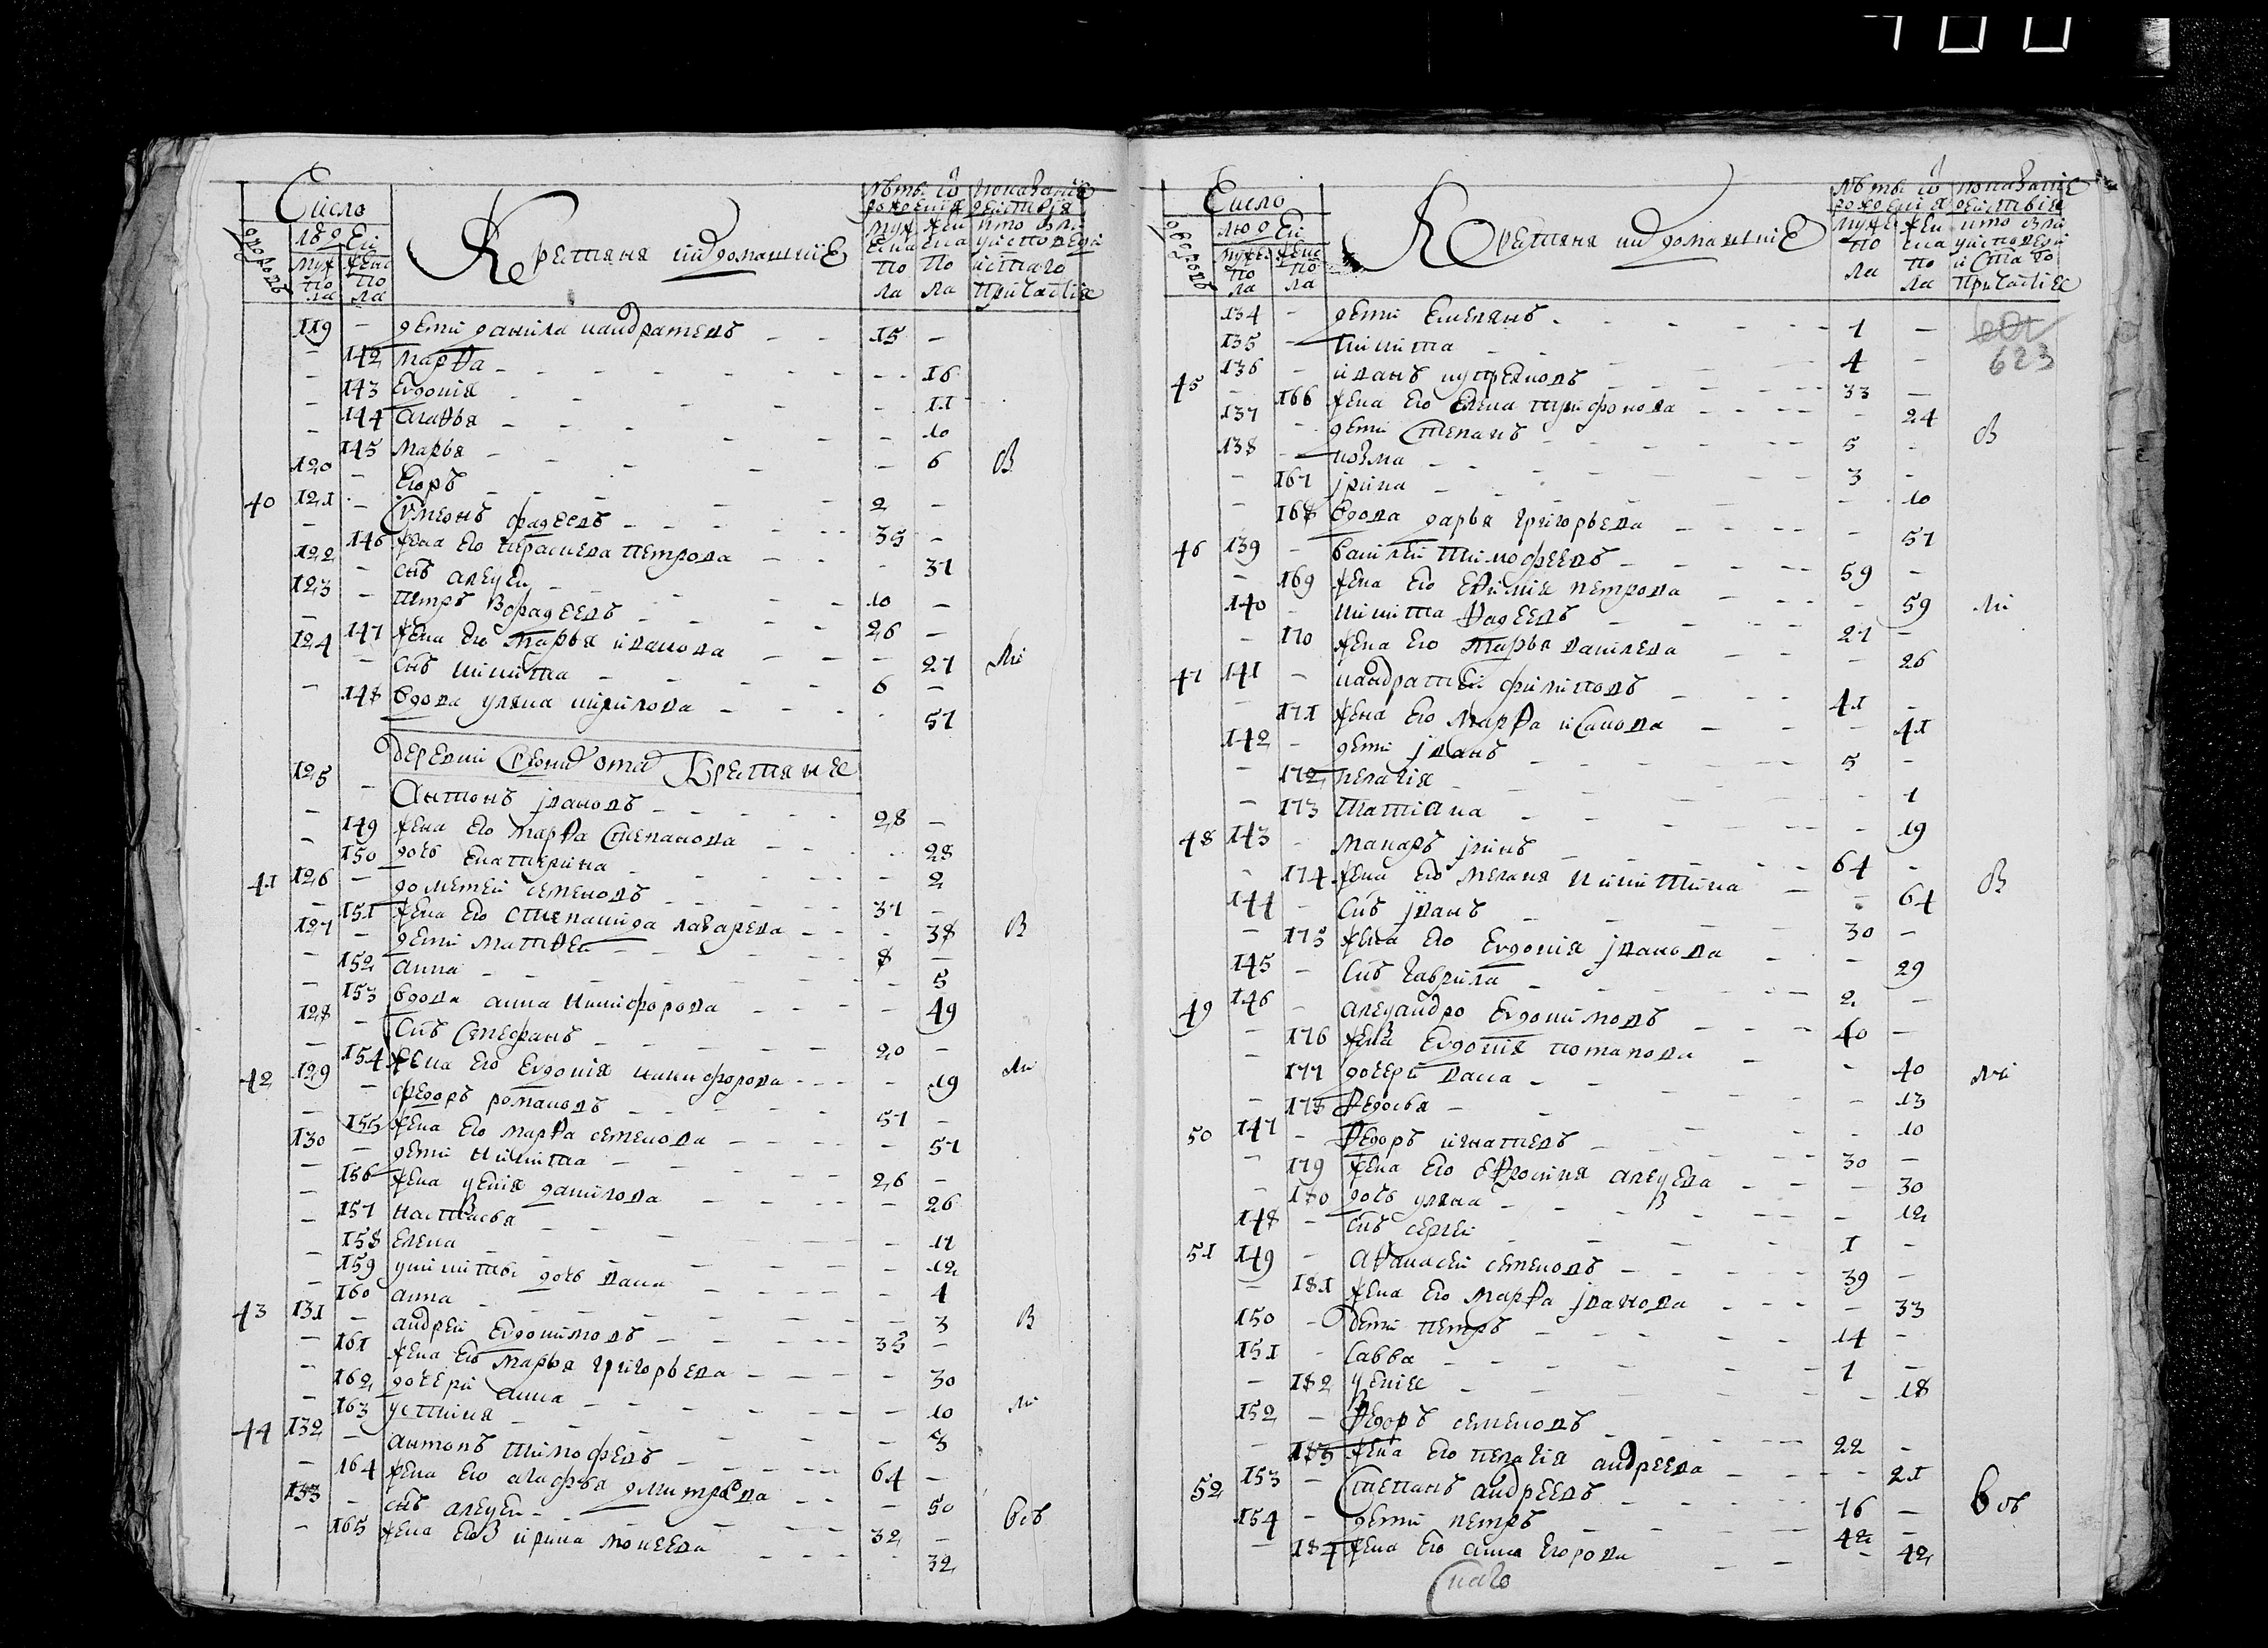 Число
людей
дворовъ
муж по ла
женс по ла
Крестяня и их домашние
лѣтъ ѿ рождения
муж ска по ла
жен ска по ла
показание действия кто были у исповеди и стаго причастия
119 - дети данила кандратевъ - - 15 -
- 142 марѳа - - 16
- 143 Евдокия - - 11
- 144 агаѳья - - 10
- 145 марья - - 6 В
120 - Егоръ - 2 -
40 121 - Сѷмеонъ фадеевъ - - 35 -
- 146 жена его парасковья петрова - - 37
122 - снъ алеѯей - 10 -
123 - петръ фадеевъ - - 26 -
- 147 жена его марья иванова - - 27 Ми
124 - снъ никита - 6 -
- 148 вдова уляна кирилова - - 57
деревни Крестяне
125 - Антонъ івановъ - - 28 -
- 149 жена его марѳа степанова - - 28
- 150 дочь екатерина - - 2
41 126 - дометей семеновъ - - 37 -
- 151 жена его степанида лазарева - - 38 В
127 - дети матѳей - - 8 -
- 152 анна - - 5
- 153 вдова анна никифорова - - 49
128 - снъ стефанъ - - 20 -
- 154 жена его Евдокия никифорова - - 19 Ми
42 129 - федоръ романовъ - - 57 -
- 155 жена его марѳа семенова - - 57
130 - дети никита - 26 -
- 156 жена ѯения данилова - - 26
- 157 настасья - - 17
- 158 елена - - 12
- 159 у никиты дочь васа - - 4
- 160 анна - - 3
43 131 - андрей Евдокимовъ - - 35 - В
- 161 жена его марья григорьева - - 30
- 162 дочери анна - - 10 Ми
- 163 устиня - - 3
44 132 - антонъ тимофеевъ - - 64 -
- 164 жена его агафья дмитрева - - 50
133 - снъ алеѯей - - 32 - всѣ
- 165 жена его ирина мокеева - - 32
Число
людей
дворовъ
мужес по ла
женс по ла
Крестяня и их домашние
лѣтъ ѿ рождения
мужес по ла
жен ска по ла
показание действия кто были у исповеди и стаго причастия
623
134 - дети Емелянъ - - 7 -
135 - никита - - 4 -
45 136 - иванъ - - 33 -
- 166 жена его елена трифонова - - 24
137 - дети степанъ - - 5 - В
138 - козма - - 3 -
- 167 јрина - - 10
- 168 вдова дарья григорьева - - 57
46 139 - василей тимофеевъ - - 59 -
- 169 жена его Еѳимия петрова - - 59 Ми
140 - никита ѳадеевъ - - 27 -
- 170 жена его марья василева - - 26
47 141 - кандратей филиповъ - - 41 -
- 171 жена его марѳа исакова - - 41
142 - дети јванъ - - 5 -
- 172 пелагия - - 7
- 173 татиана - - 19
48 143 - макаръ - - 64 -
- 174 жена его меланя никитина - - 64 В
144 - снъ јванъ - - 30 -
- 175 жена его Евдокия јванова - - 29
145 - снъ гаврила - - 2 -
49 146 - алеѯандро Евдокимовъ - - 40 -
- 176 жена Евдокия потапова - - 40 Ми
- 177 дочери васа - - 13
- 178 ѳедосья - - 10
50 147 - ѳедоръ игнатевъ - - 30 -
- 179 жена его еѳросиния алеѯева - - 30
- 180 дочь уляна - - 12
148 - снъ сергей - - 1 -
51 149 - аѳанасей семеновъ - - 39 -
- 181 жена его марѳа јванова - - 33
150 - дети петръ - - 14 -
151 - савва - - 7 -
- 182 ѯения - - 18
152 - ѳедоръ семеновъ - - 22 -
- 183 жена его пелагия андреева - - 21
52 153 - Степанъ андреевъ - - 76 - всѣ
154 - дети петръ - - 42 -
- 184 жена его анна егорова - - 42